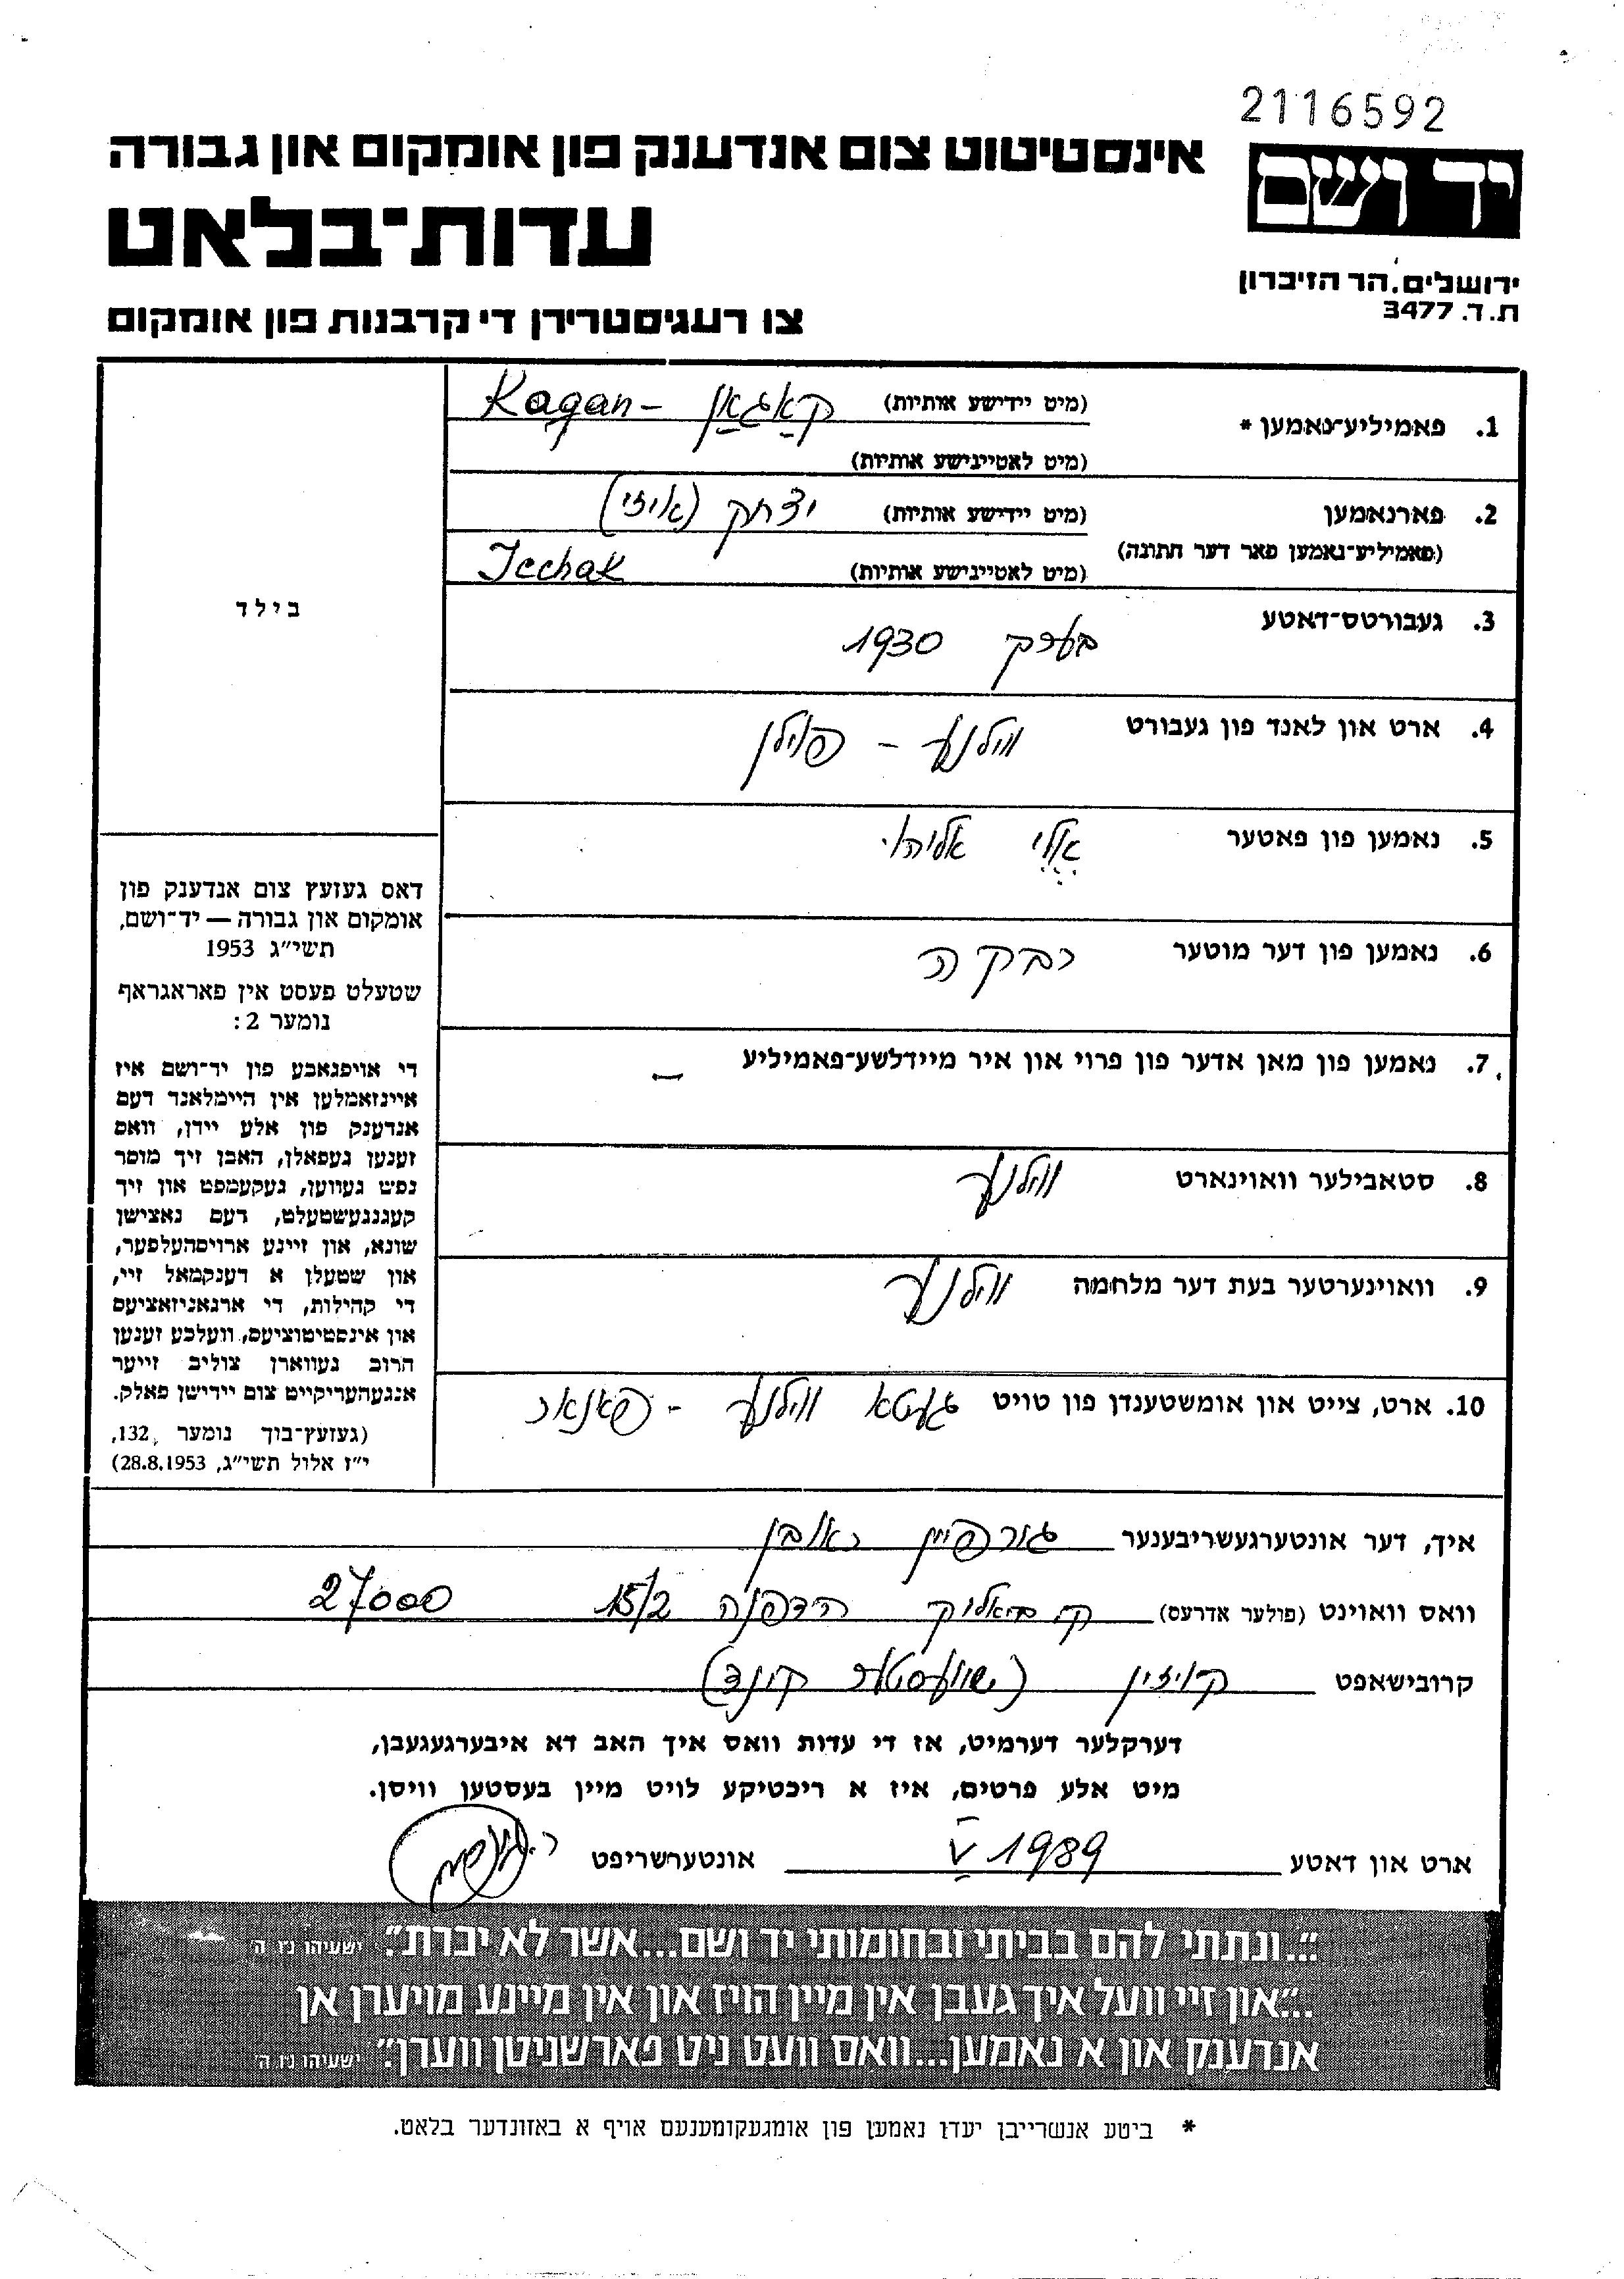 2116592
יד ושם
ירושלים, הר הזיכרון
ת. ד. 3477
אינסטיטוט צום אנדענק פון אומקום און גבורה
עדות-בלאט
צו רעגיסטרירן די קרבנות פון אומקום
1. פאמיליע-נאמען * (מיט יידישע אותיות) קאַגאַן - Kagan
(מיט לאטיינישע אותיות)
2. פארנאמען (מיט יידישע אותיות) יצחק (איזי)
(פאמיליע-נאמען פאר דער חתונה) (מיט לאטיינישע אותיות) Icchak
3. געבורטס-דאטע בערך 1930
4. ארט און לאנד פון געבורט ווילנע - פוילן
5. נאמען פון פאטער אלי אליהו
6. נאמען פון דער מוטער רבקה
7. נאמען פון מאן אדער פון פרוי און איר מיידלשע-פאמיליע -
8. סטאבילער וואוינארט ווילנע
9. וואוינערטער בעת דער מלחמה ווילנע
10. ארט, צייט און אומשטענדן פון טויט געטא ווילנע - פאנאר
בילד
דאס געזעץ צום אנדענק פון
אומקום און גבורה — יד-ושם,
תשי"ג 1953
שטעלט פעסט אין פאראגראף
נומער 2:
די אויפגאבע פון יד-ושם איז
איינזאמלען אין היימלאנד דעם
אנדענק פון אלע יידן, וואס
זענען געפאלן, האבן זיך מוסר
נפש געווען, געקעמפט און זיך
קעגנגעשטעלט, דעם נאצישן
שונא, און זיינע ארויסהעלפער,
און שטעלן א דענקמאל זיי,
די קהילות, די ארגאניזאציעס
און אינסטיטוציעס, וועלכע זענען
חרוב געווארן צוליב זייער
אנגעהעריקייט צום יידישן פאלק.
(געזעץ-בוך נומער 132,
י"ז אלול תשי"ג, 28.8.1953)
איך, דער אונטערגעשריבענער גורפיין ראובן
וואס וואוינט (פולער אדרעס) ק. ביאליק הדפנה 15/2 27000
קרובישאפט קוזין (שוועסטער קינד)
דערקלער דערמיט, אז די עדות וואס איך האב דא איבערגעגעבן,
מיט אלע פרטים, איז א ריכטיקע לויט מיין בעסטען וויסן.
ארט און דאטע V 1989 אונטערשריפט
"...ונתתי להם בביתי ובחומותי יד ושם...אשר לא יכרת". ישעיהו נ"ו ה'
..."און זיי וועל איך געבן אין מיין הויז און אין מיינע מויערן אן
אנדענק און א נאמען...וואס וועט ניט פארשניטן ווערן". ישעיהו נ"ו ה'
* ביטע אנשרייבן יעדן נאמען פון אומגעקומענעם אויף א באזונדער בלאט.